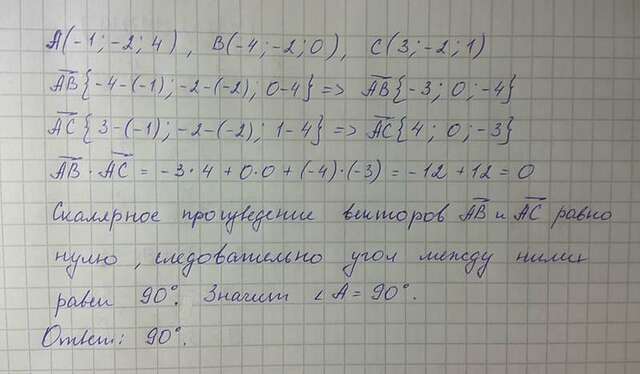 A(-1; -2; 4), B(-4; -2; 0), C(3; -2; 1)
A͞B{-4-(-1); -2-(-2); 0-4} => A͞B{-3; 0; -4}
A͞C{3-(-1); -2-(-2); 1-4} => A͞C{4; 0; -3}
A͞B · A͞C = -3·4 + 0·0 + (-4)·(-3) = -12 + 12 = 0
Скалярное произведение векторов A͞B и A͞C равно
нулю, следовательно угол между ними
равен 90°. Значит ∠A = 90°.
Ответ: 90°.